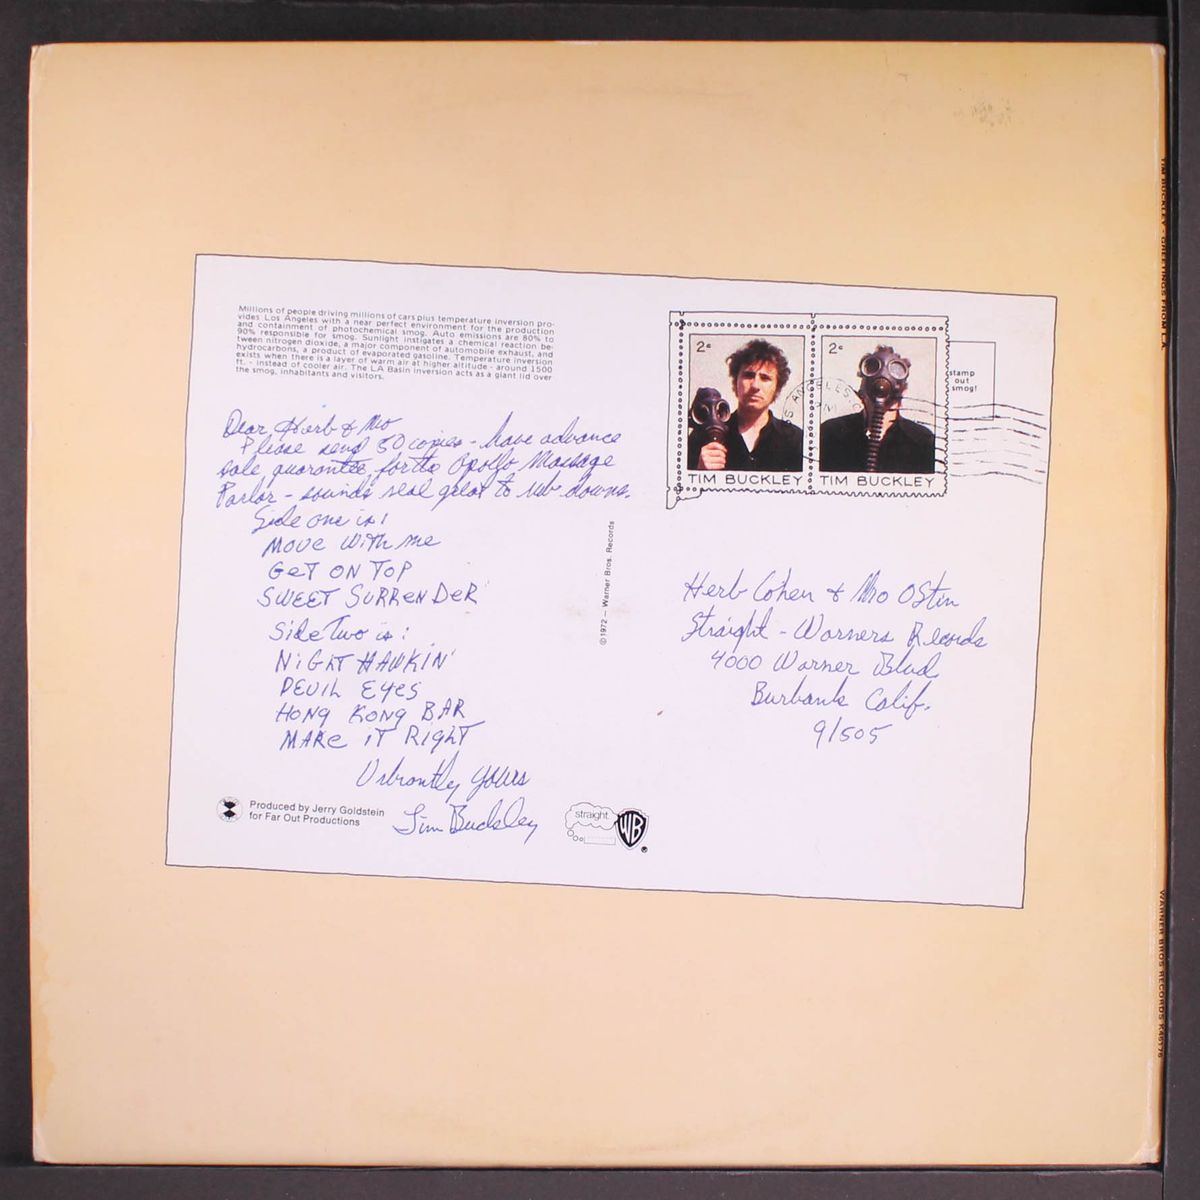 Millions of people driving millions of cars plus temperature inversion pro-
vides Los Angeles with a near perfect environment for the production
and containment of photochemical smog. Auto emissions are 80% to
90% responsible for smog. Sunlight instigates a chemical reaction be-
tween nitrogen dioxide, a major component of automobile exhaust, and
hydrocarbons, a product of evaporated gasoline. Temperature inversion
exists when there is a layer of warm air at higher altitude - around 1500
ft. - instead of cooler air. The LA Basin inversion acts as a giant lid over
the smog, inhabitants and visitors.
Dear Herb & Mo
Please send 50 copies - have advance
sale guarantee for the Apollo Massage
Parlor - sounds real great to rub downs.
Side one is:
MOVE WITH ME
GET ON TOP
SWEET SURRENDER
Side Two is:
NIGHT HAWKIN'
DEVIL EYES
HONG KONG BAR
MAKE IT RIGHT
yours
Tim Buckley
Produced by Jerry Goldstein
for Far Out Productions
straight.
WB
®
©1972 — Warner Bros. Records
2¢
2¢
TIM BUCKLEY
TIM BUCKLEY
stamp
out
smog!
Herb Cohen & Mo Ostin
Straight - Warners Records
4000 Warner Blvd
Burbank Calif.
91505
TIM BUCKLEY - GREETINGS FROM L.A.
WARNER BROS RECORDS K46176